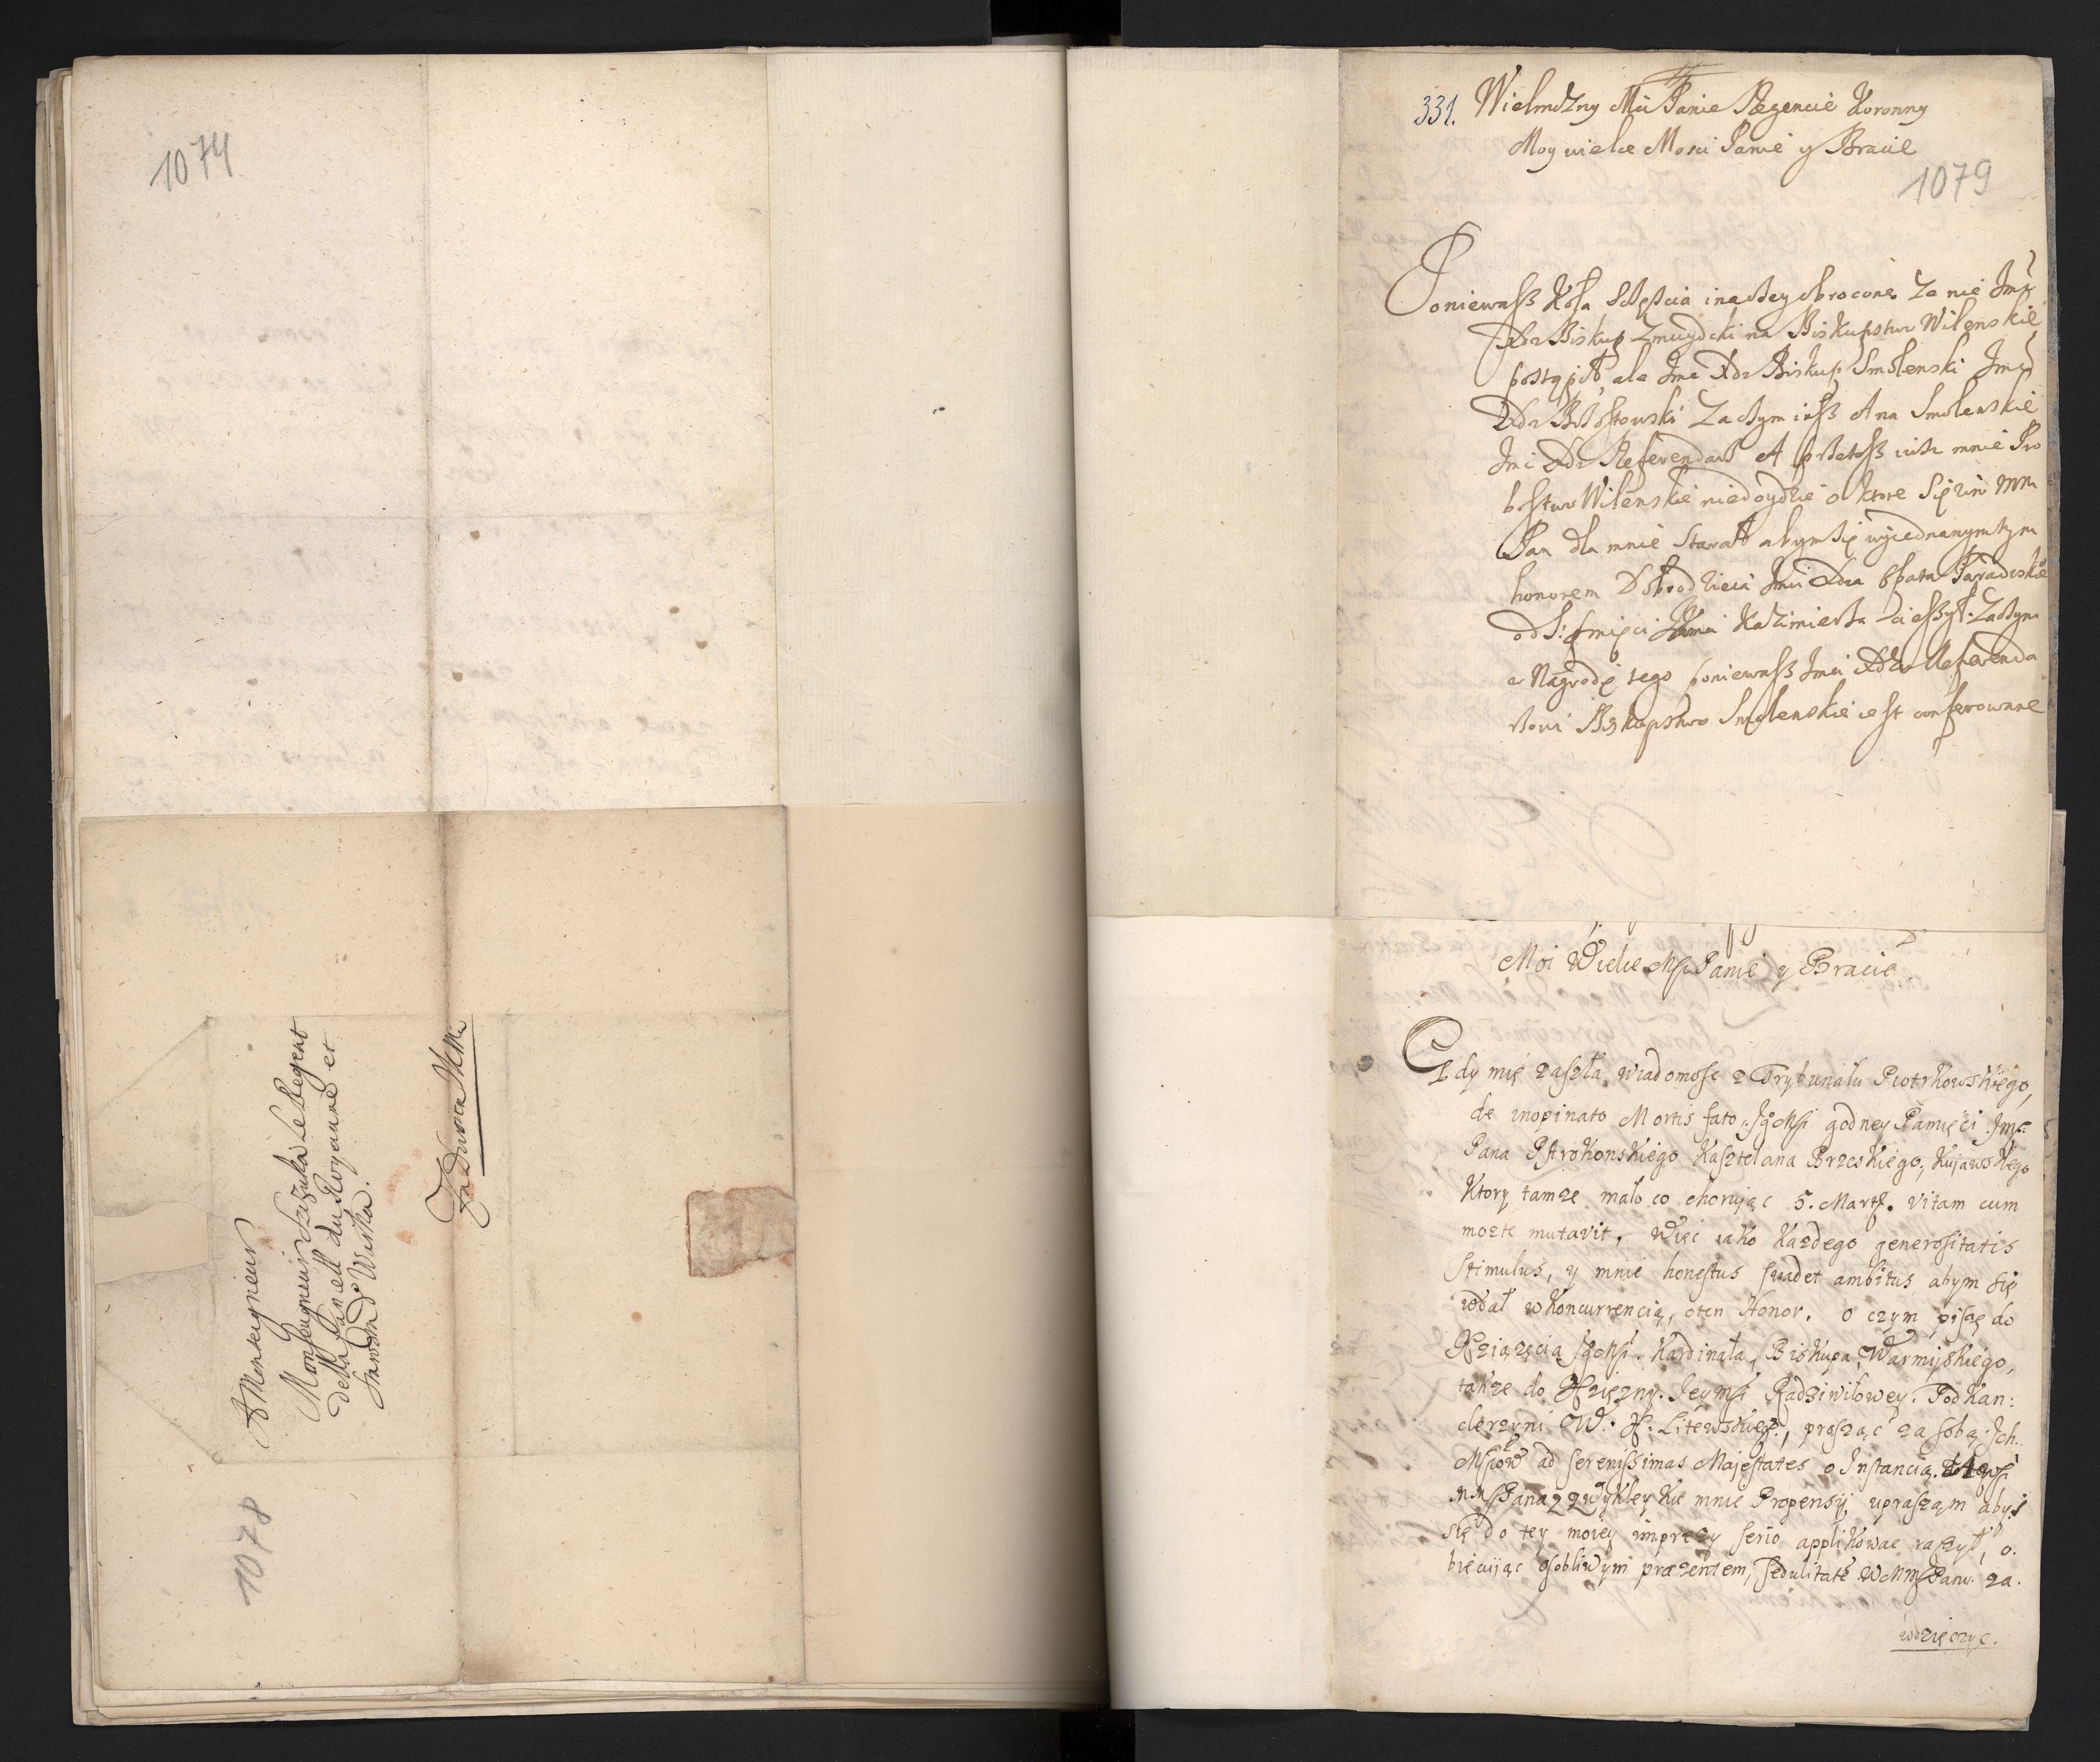 1074
A Monseigneur
Monseigneur Szczuka Le Regent
de la du Royaume et
de Wiska.
Za Dwora
1078
331. Wielmożny Mći Panie Regencie Koronny
Moy wielce Mosci Panie y Bracie
1079
Poniewasz Koła Sczęscia inaczey obrocone. Ze nie Jmć
Xdz Biskup Zmuydzki na Biskupstwo Wilenskie
postąpił, ale Jmć Xdz Biskup Smolenski Jmć
Xdz Brzostowski Zaczym iusz A na Smolenskie
Jmć Xdz Referendarz A przetosz iusz mnie Pro
bostwo Wilenskie niedoydzie o ktore Się MM
Pan dla mnie Starał abym Się wyiednanym tym
honorem Dobrodzieia Jmci Xdza Opata Paradiskie
od S: pamięci Jana Kazimierza cieszył. Zaczym
w Nagrodę tego poniewasz Jmci Xdzu Referenda
rzowi Biskupstwo Smolenskie iest conferowane
Moi Wielce Msci Panie y Bracie
Gdy mię zaszła wiadomosc z Trybunału Piotrkowskiego,
de inopinato Mortis fato JgMsci godney Pamięci Jmc
Pana Pstrokonskiego Kasztelana Brzeskiego, Kujawskiego
Ktory tamze mało co chorując 5. Martij. vitam cum
morte mutavit, Więc iako Kazdego generositatis
Stimulus, y mnie honestus suadet ambitus abym się
wdał w Koncurrencią, o ten Honor. o czym piszę do
Xziązęcia JgMsci Kardinała, Biskupa Warmijskiego,
takze do Xzięzny Jeymsci Radziwiłowey. Podkan:
clerzyni W. X. Litewskieg:, prosząc za sobą Jch
Msciow ad serenissimas Majestates o Instancią.
MMsPana z zwykley Ku mnie Propensij upraszam abyś
się do tey moiey imprezy serio applikowac raczył, o.
biecując osobliwym præzentem, sedulitatē WMMsPana za.
wdzięczyć.